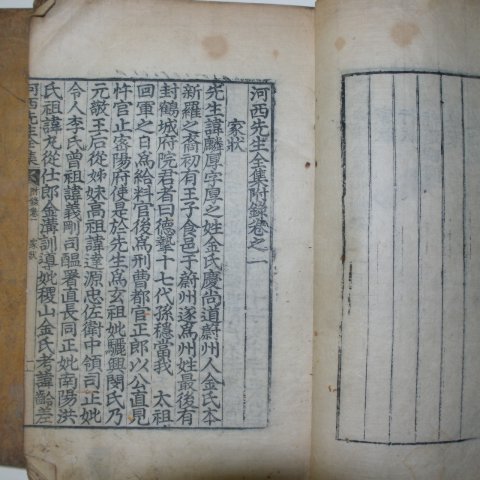 河西先生全集附錄卷之一
家狀
先生諱麟厚字厚之姓金氏慶尚道蔚州人金氏本
新羅之裔初有王子食邑于蔚州遂爲州姓最後有
封鶴城府院君者曰德摯十七代孫穩當我 太祖
回軍之日爲給料官後爲刑曹都官正郎以公直見
忤官止密陽府使是於先生爲玄祖妣驪興閔氏乃
元敬王后從姊妹高祖諱達源忠佐衛中領司正妣
令人李氏曾祖諱義剛司醞署直長同正妣南陽洪
氏祖諱丸從仕郎金溝訓導妣稷山金氏考諱齡差
河西先生全集 附錄卷一 家狀 一